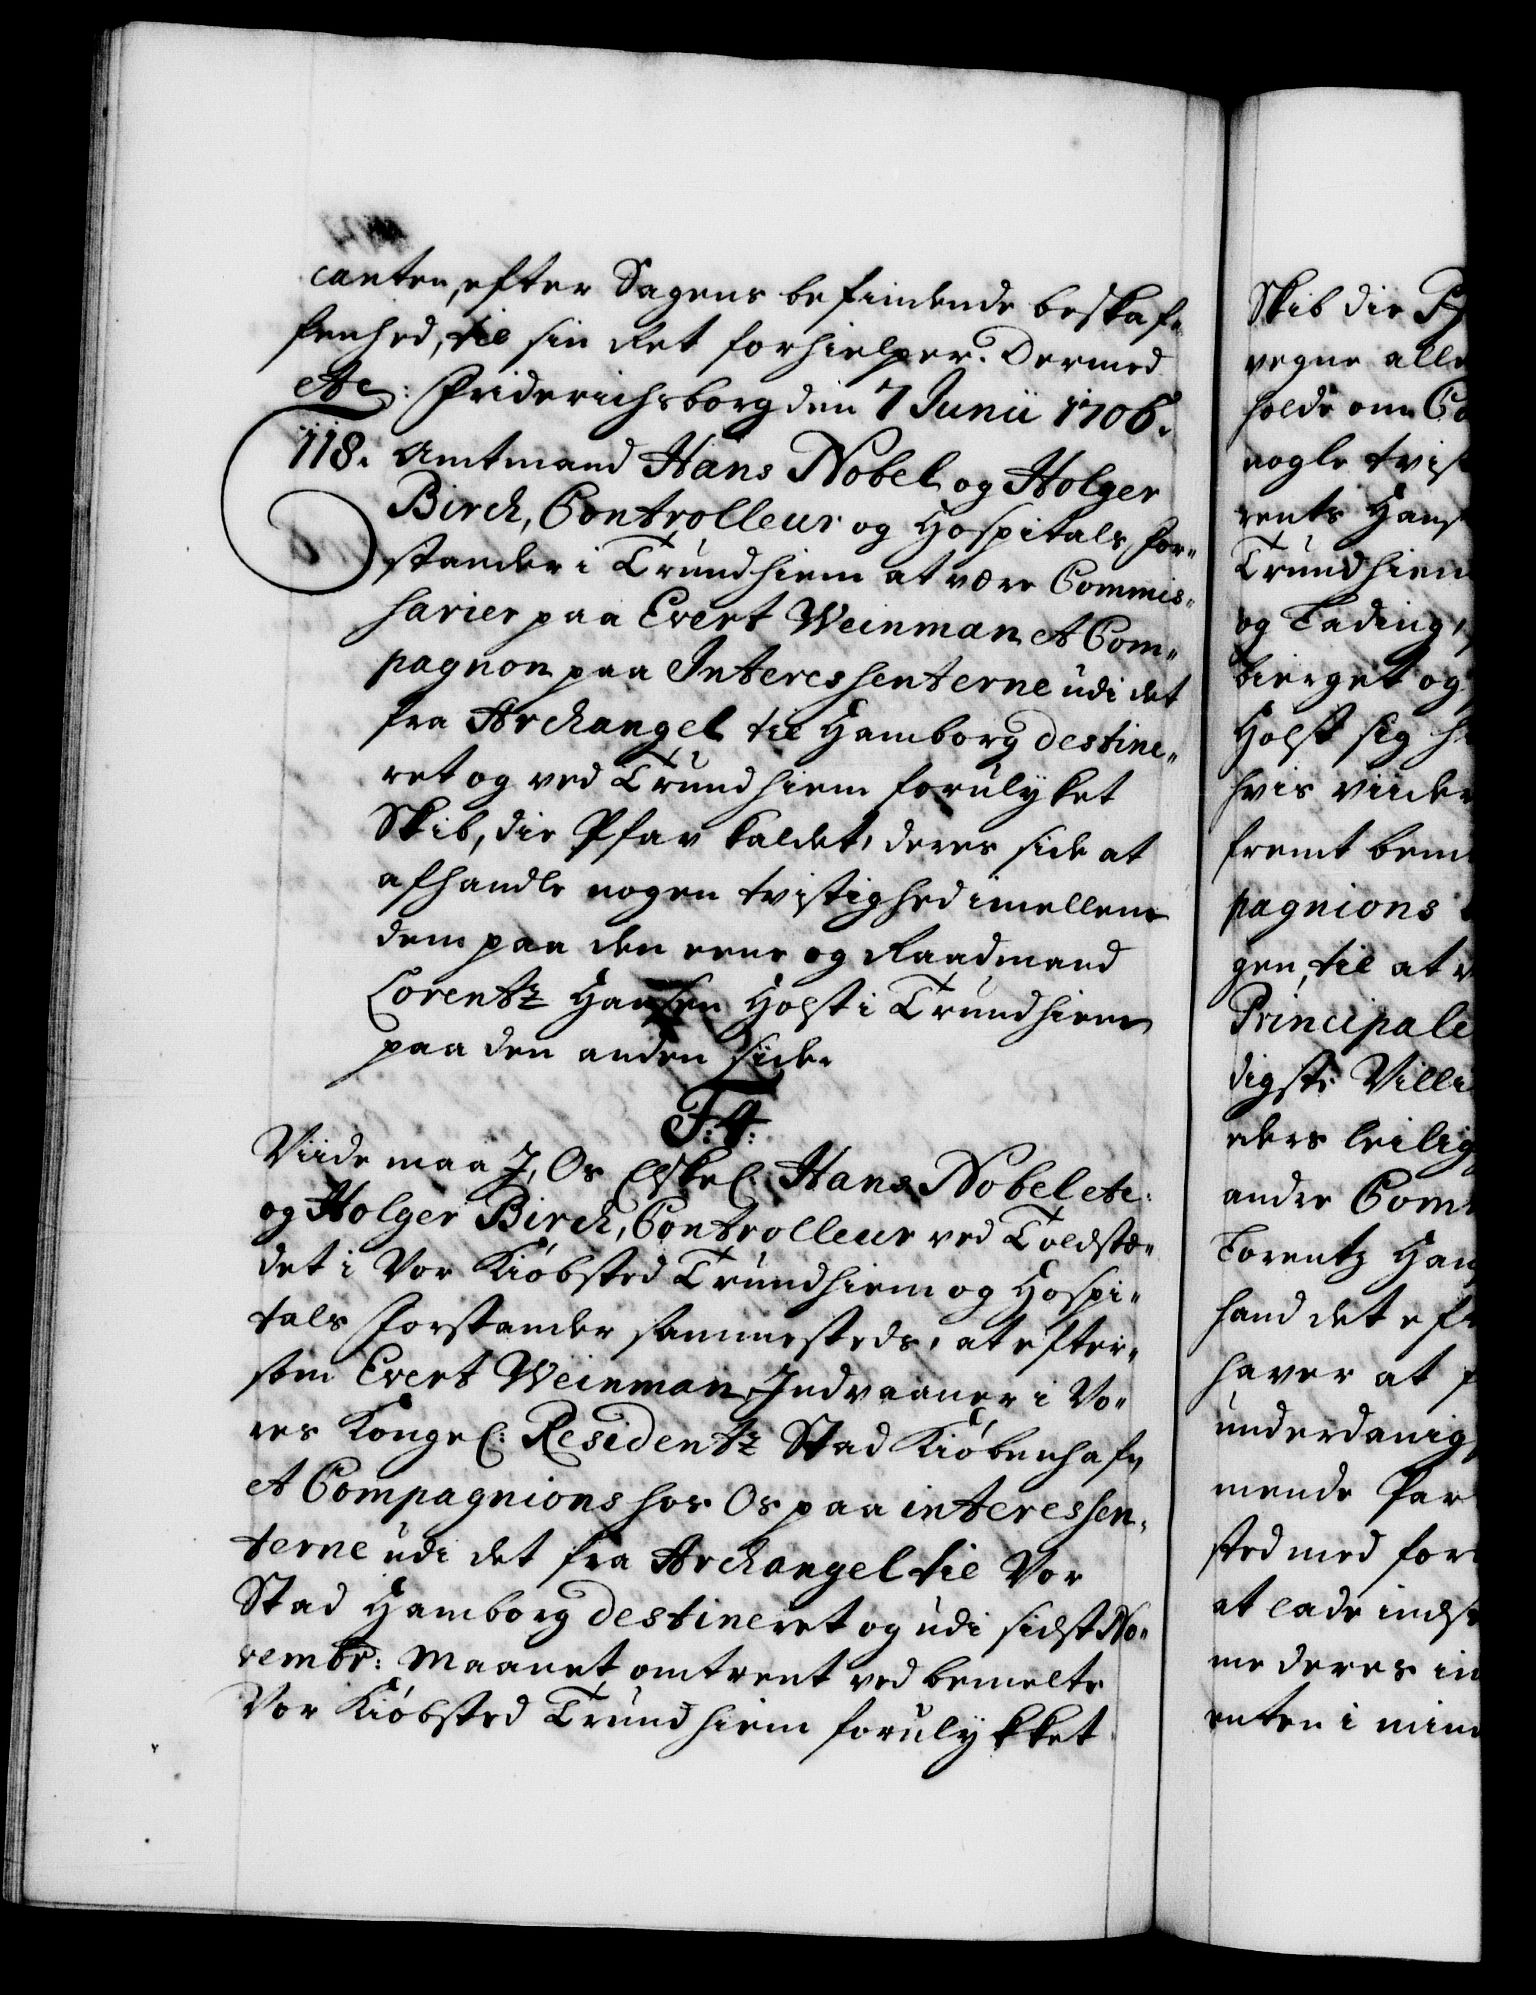 canten, efter Sagens befindende beskaf-
fenhed, til sin Ret forhielper. Dermed
etc: Friderichsborg den 7 Junii 1706.
118. Amtmand Hans Nobel og Holger
Birch, Controlleur og Hospitals for-
stander i Trundhiem at være Commis-
sarier paa Evert Weinman et Com-
pagnon paa Interessenterne udi det
fra Archangel til Hamborg destine-
ret og ved Trundhiem forulyket
Skib, die Pfav kaldet, deres side at
afhandle nogen tvistighed imellem
dem paa den eene og Raadmand
Lorentz Hansen Holst i Trundhiem
paa den anden side.
F: 4:
Viide maa J, Os Elskel. Hans Nobel etc:
og Holger Birch, Controlleur ved Toldstæ-
det i Vor Kiøbsted Trundhiem og Hospi-
tals forstander sammesteds, at efter-
som Evert Weinman, Indvaaner i Vo-
res Kongel: Residentz Stad Kiøbenhafn
et Compagnions hos Os paa interessen-
terne udi det fra Archangel til Vor
Stad Hamborg destineret og udi sidst No-
vembr: Maanet omtrent ved bemelte
Vor Kiøbsted Trundhiem forulykket
Skib die Pf
vegne alle
holde om Co
nogle tvist
rents Hans
Trundhiem
og Lading,
bierget og
Holst sig h
hvis viider
fremt bem
pagnions
gen, til at
Principale
digste Villi
eders leilig
andre Com
Lorentz Han
hand det eft
haver at
underdanig
mende Par
sted med for
at lade indst
me deres in
enten i min